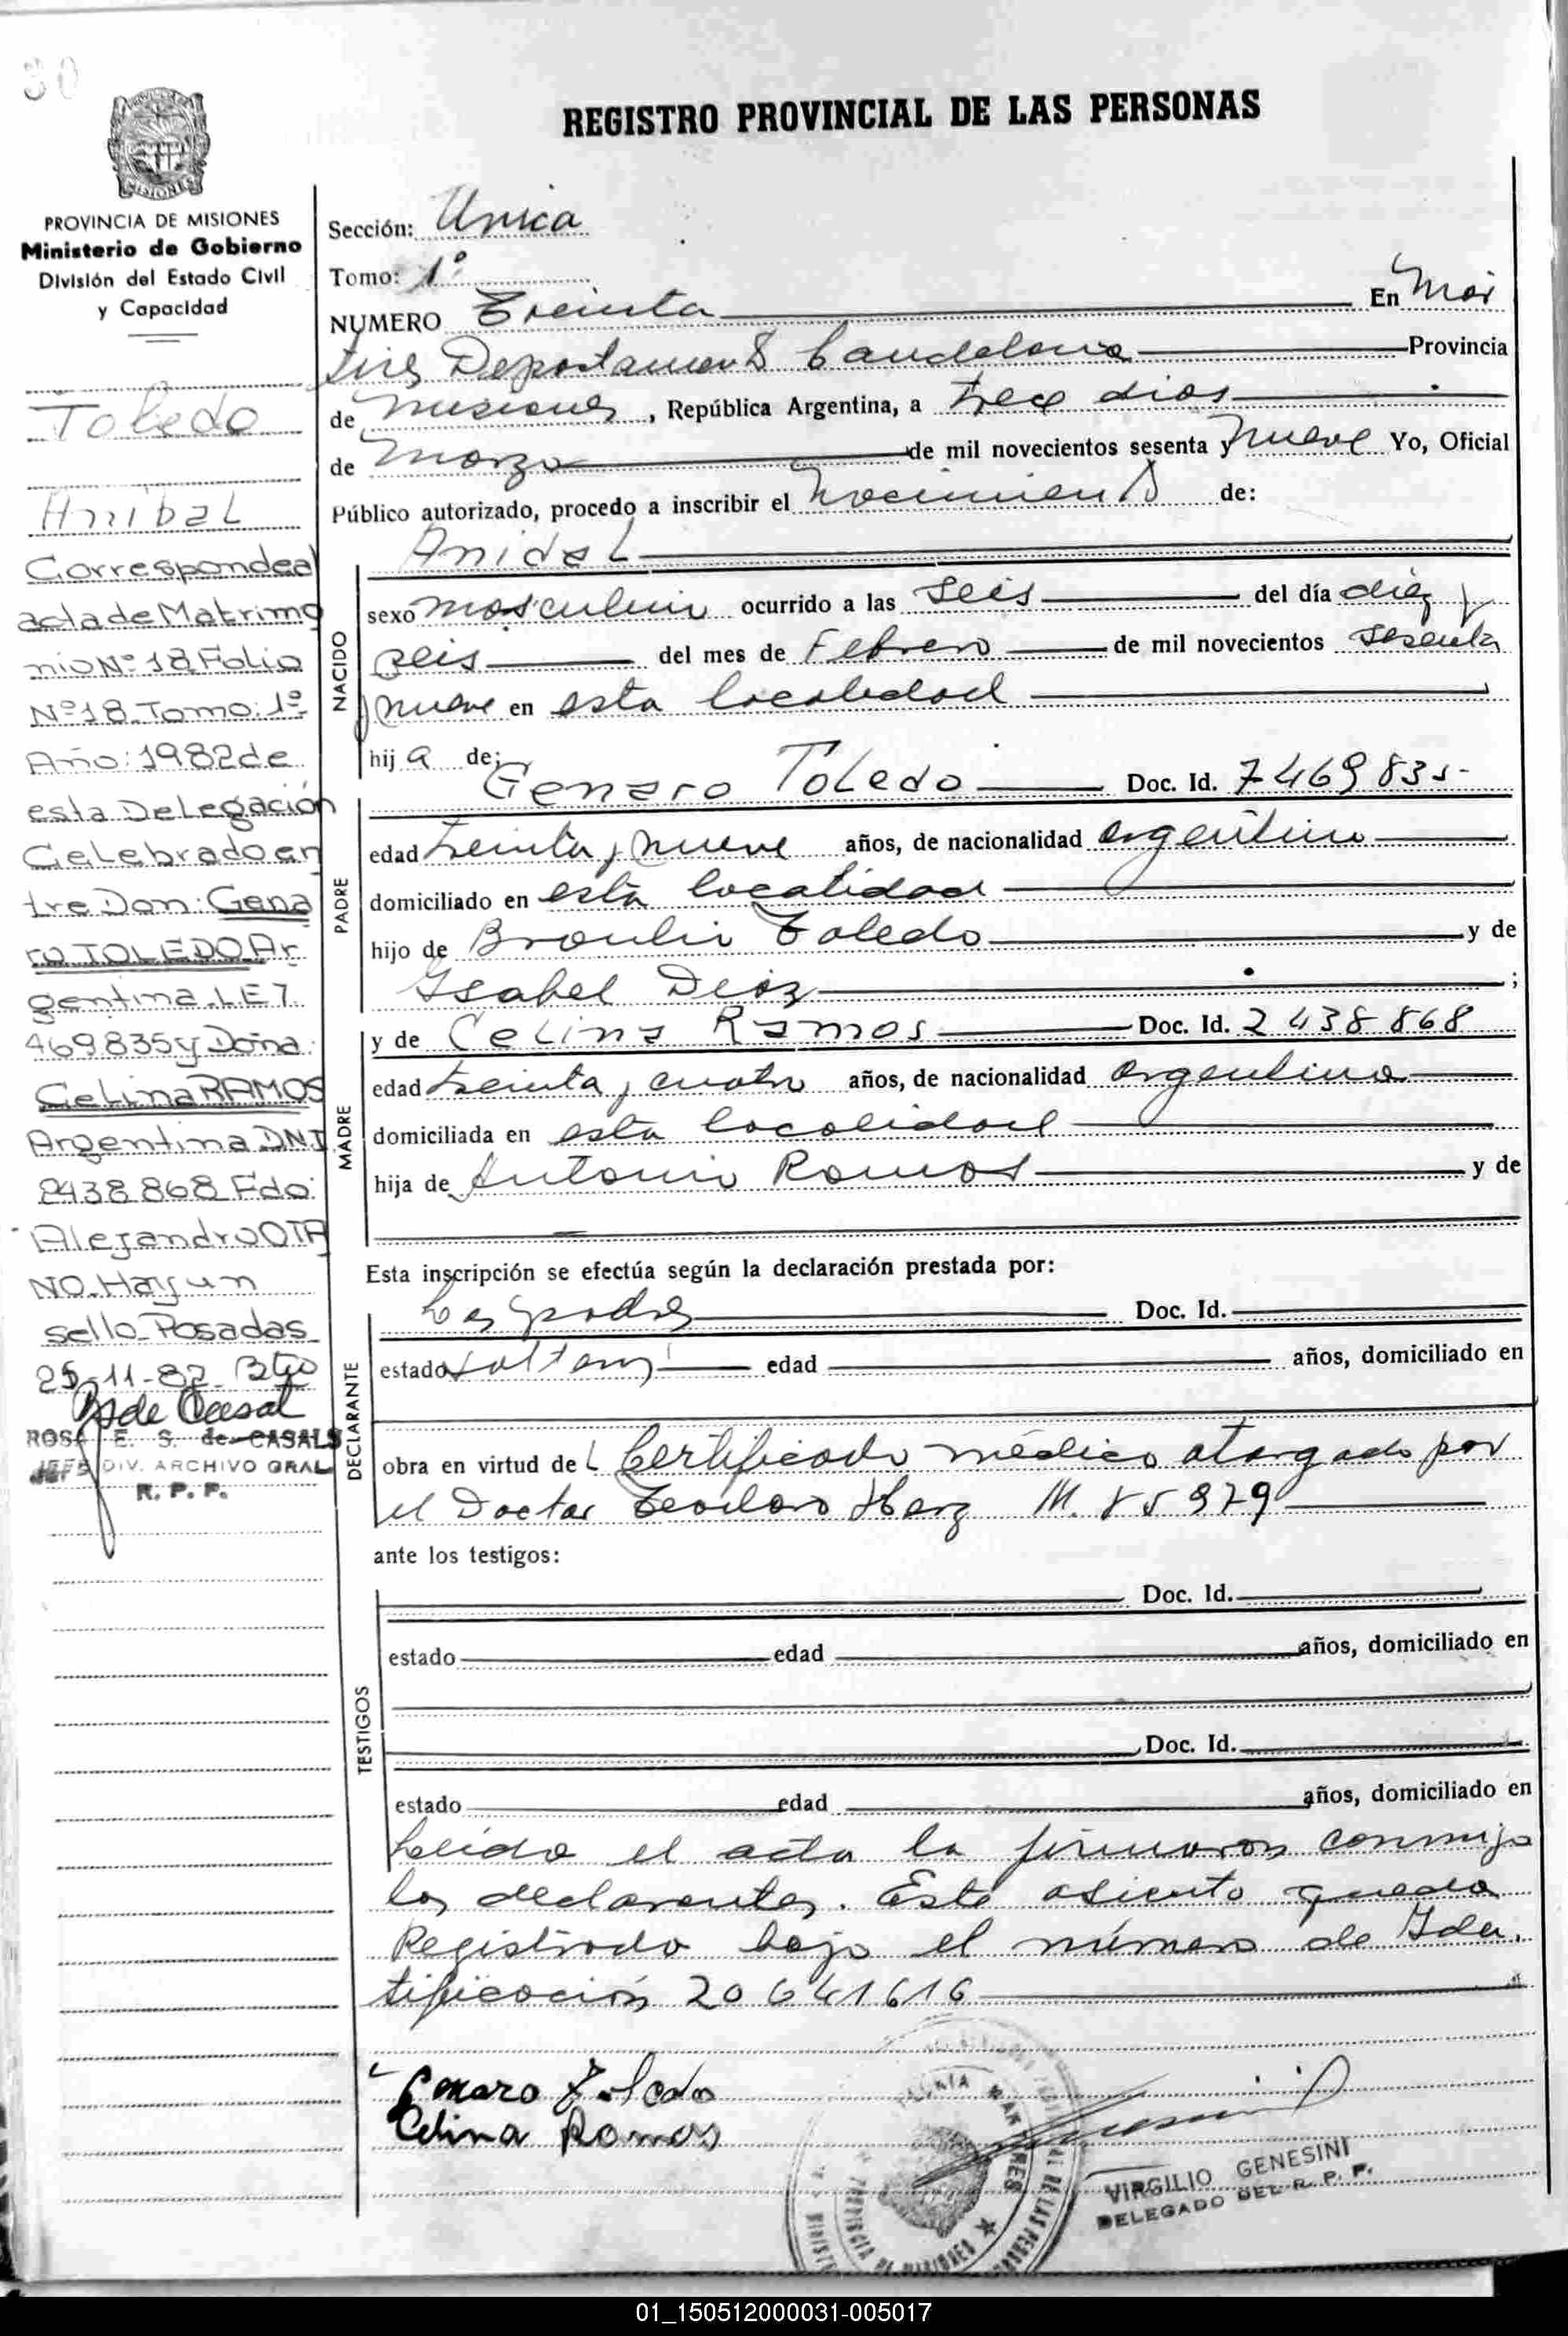 30
REGISTRO PROVINCIAL DE LAS PERSONAS
MISIONES
PROVINCIA DE MISIONES
Ministerio de Gobierno
División del Estado Civil
y Capacidad
Toledo
Anibal
Corresponde al
acta de Matrimo
nio Nº 18 Folio
Nº 18. Tomo: 1º
Año: 1982 de
esta Delegación
Celebrado en
tre Don: Gena
ro TOLEDO Ar
gentina. L.E 7.
469835 y Doña:
Celina RAMOS
Argentina DNI
2438868 Fdo:
Alejandro OTA
NO. Hay un
sello. Posadas
25-11-82
R de Casal
ROSA E. S. de CASALS
JEFE DIV. ARCHIVO GRAL
R. P. P.
Sección: Unica
Tomo: 1º
NUMERO Treinta En Már
tires Departamento Candelaria Provincia
de Misiones, República Argentina, a trece dias
de Marzo de mil novecientos sesenta y nueve Yo, Oficial
Público autorizado, procedo a inscribir el Nacimiento de:
NACIDO
Anibal
sexo masculino ocurrido a las seis del día diez y
seis del mes de Febrero de mil novecientos sesenta
y nueve en esta localidad
hij a de:
PADRE
Genaro Toledo Doc. Id. 7469835
edad treinta y nueve años, de nacionalidad argentino
domiciliado en esta localidad
hijo de Braulio Toledo y de
Isabel Deiz ;
MADRE
y de Celina Ramos Doc. Id. 2438868
edad treinta y cuatro años, de nacionalidad argentina
domiciliada en esta localidad
hija de Antonio Ramos y de
Esta inscripción se efectúa según la declaración prestada por:
DECLARANTE
Los padres Doc. Id.
estado solteros edad años, domiciliado en
obra en virtud de L Certificado médico otorgado por
el Doctor Teodoro Herz M.
ante los testigos:
TESTIGOS
Doc. Id.
estado edad años, domiciliado en
Doc. Id.
estado edad años, domiciliado en
Leida el acta la firmaron conmigo
los declarantes. Este asiento queda
Registrado bajo el número de Iden
tificación 20641616
Genaro Toledo
Celina Ramos
VIRGILIO GENESINI
DELEGADO DEL R. P. P.
01_150512000031-005017